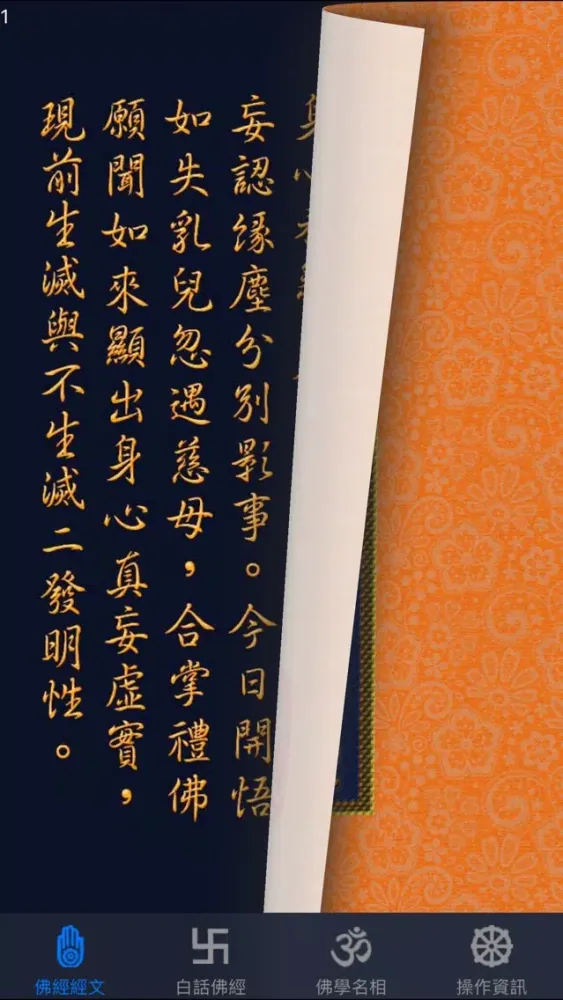 1
妄認緣塵分別影事。今日開悟
如失乳兒忽遇慈母,合掌禮佛
願聞如來顯出身心真妄虛實,
現前生滅與不生滅二發明性。
佛經經文
白話佛經
佛學名相
操作資訊